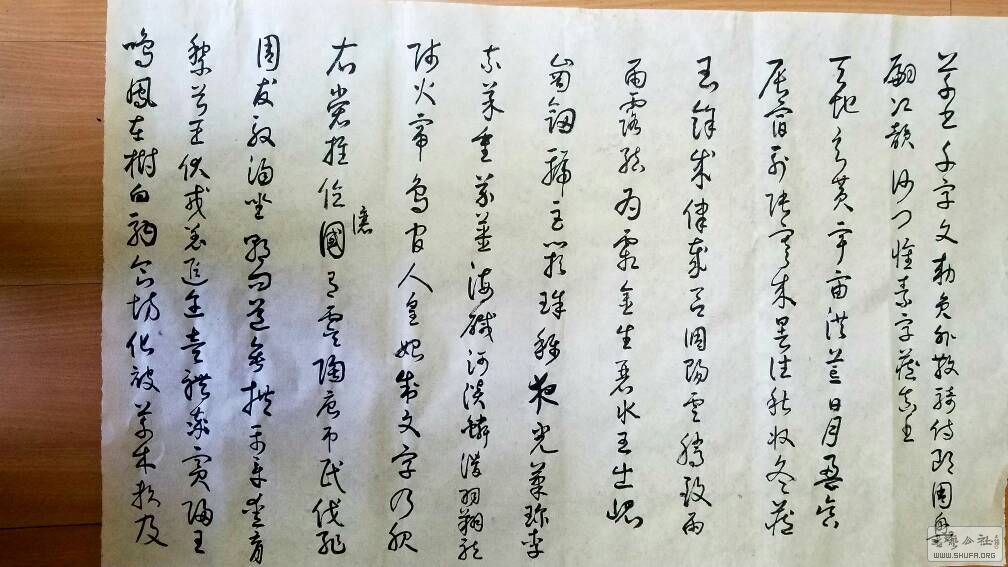 草書千字文勅員外散騎侍郎周興
嗣次韻 沙門懷素字藏真書
天地玄黃宇宙洪荒日月盈昃
辰宿列張寒來暑往秋收冬藏
閏餘成律歲呂調陽雲騰致雨
雨露結為霜金生麗水玉出崐
崗劍號巨闕珠稱夜光菓珍李
柰菜重芥薑海鹹河淡鱗潛羽翔龍
師火帝鳥官人皇始制文字乃服
衣裳推位國有虞陶唐弔民伐罪
讓
周發殷湯坐朝問道垂拱平章愛育
黎首臣伏戎羌遐邇壹體率賓歸王
鳴鳳在樹白駒食場化被草木賴及
書法公社
WWW.SHUFA.ORG